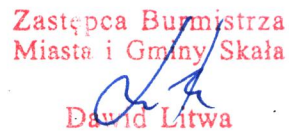 Zastępca Burmistrza
Miasta i Gminy Skała
Dawid Litwa